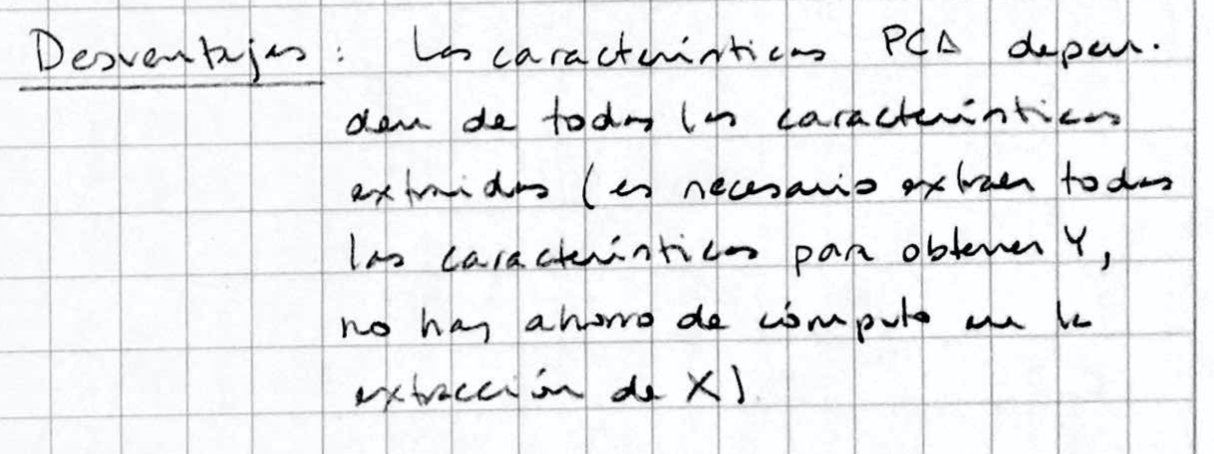 Desventajas: Las características PCA depen-
den de todas las características
extraídas (es necesario extraer todas
las características para obtener Y,
no hay ahorro de cómputo en la
extracción de X).